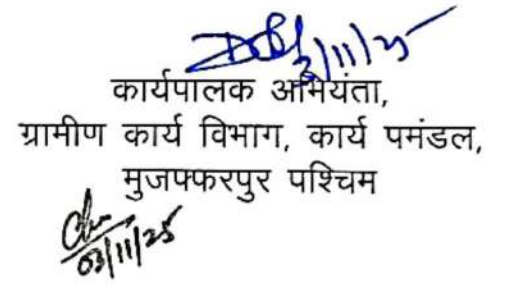 3/11/25
कार्यपालक अभियंता,
ग्रामीण कार्य विभाग, कार्य पमंडल,
मुजफ्फरपुर पश्चिम
03/11/25